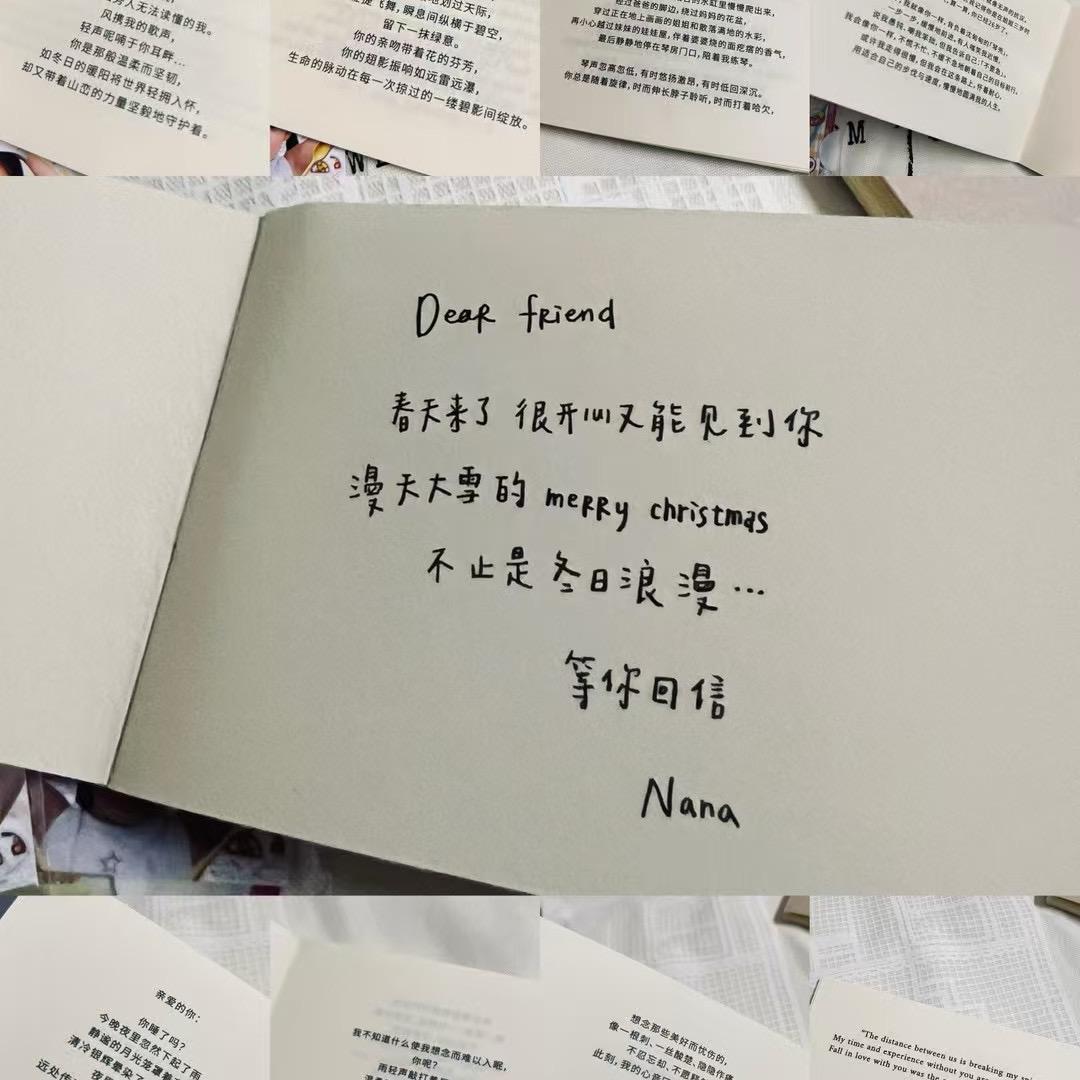 旁人无法读懂的我。
风携我的歌声，
轻声呢喃于你耳畔…
你是那般温柔而坚韧，
如冬日的暖阳将世界轻拥入怀，
却又带着山峦的力量坚毅地守护着。
地划过天际，
飞舞，瞬息间纵横于碧空，
留下一抹绿意。
你的亲吻带着花的芬芳，
你的翅影振响如远雷远瀑，
生命的脉动在每一次掠过的一缕碧影间绽放。
的水缸里慢慢爬出来，
经过爸爸的脚边，绕过妈妈的花盆，
穿过正在地上画画的姐姐和散落满地的水彩，
再小心越过妹妹的娃娃屋，伴着婆婆烧的面疙瘩的香气，
最后静静地停在琴房门口，陪着我练琴。
琴声忽高忽低，有时悠扬激昂，有时低回深沉。
你总是随着旋律，时而伸长脖子聆听，时而打着哈欠，
我会像你一样，不慌不忙、不缓不急地朝着自己的目标前行。
或许我走得很慢，但我会在这条路上，怀着耐心，
用适合自己的步伐与速度，慢慢地圆满我的人生。
W
M
Dear friend
春天来了 很开心又能见到你
漫天大雪的 merry christmas
不止是冬日浪漫…
等你回信
Nana
亲爱的你：
你睡了吗？
今晚夜里忽然下起了雨
静谧的月光笼罩着
清冷银辉晕染了
夜
远处传
我不知道什么使我想念而难以入眠，
你呢？
雨轻声敲打着
想念那些美好而忧伤的，
像一根刺、一丝酸楚、隐隐作痛
不忍忘却、不愿释
此刻，我的心音
"The distance between us is breaking my
My time and experience without you are
Fall in love with you was the